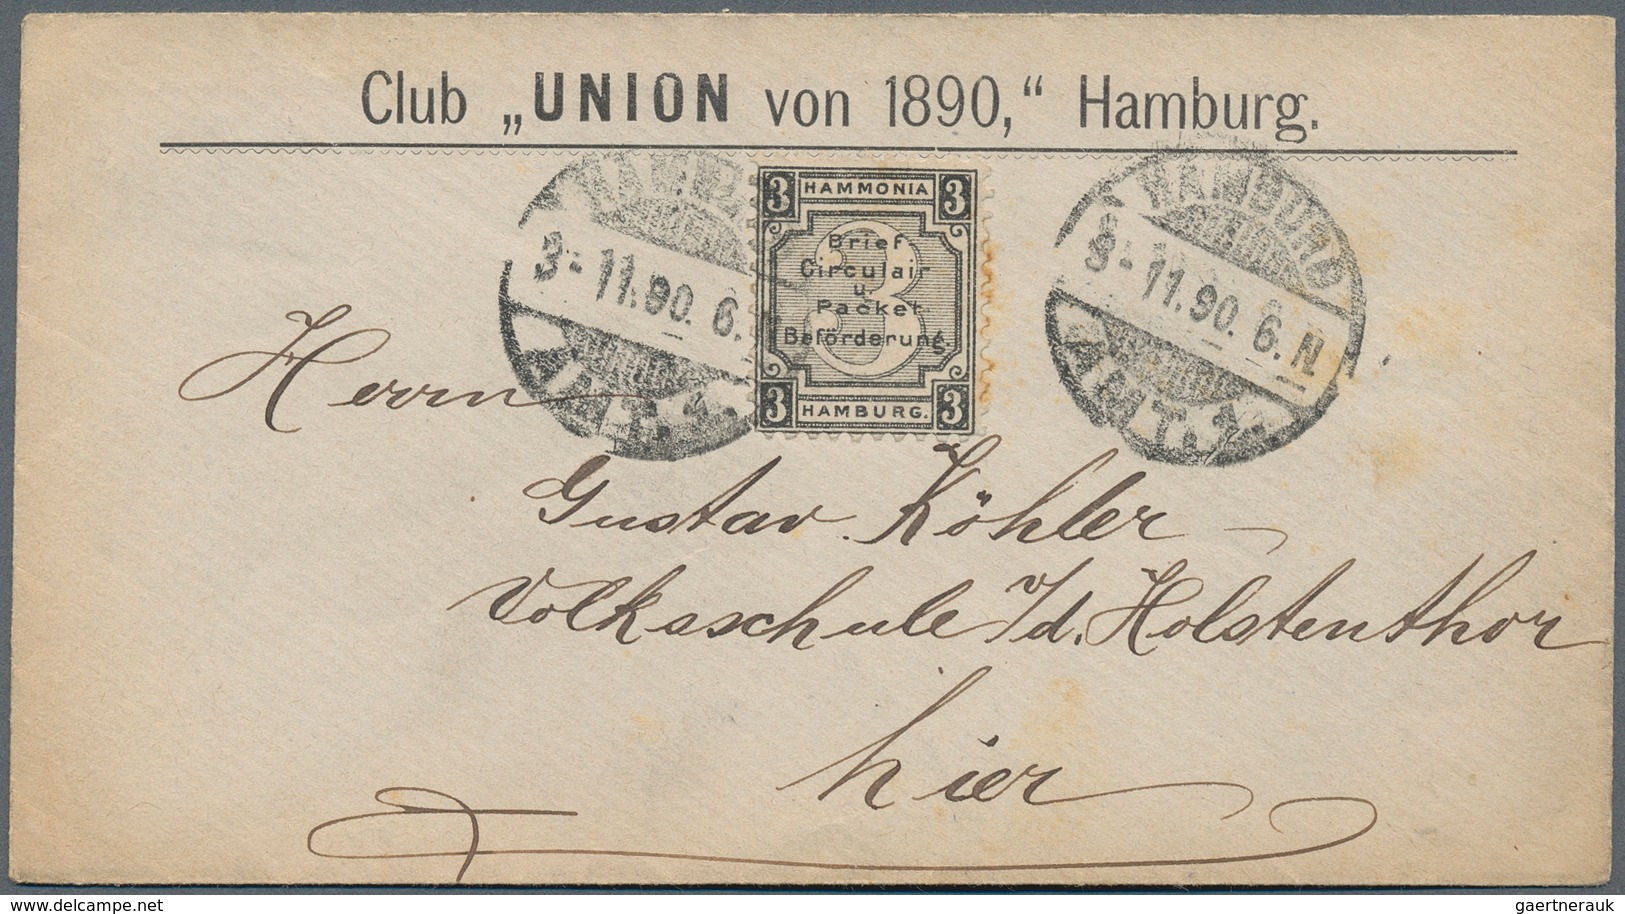 Club „UNION von 1890,“ Hamburg.
3 HAMMONIA 3
Brief
Circulair
u.
Packet
Beförderung.
3
3 HAMBURG. 3
3-11.90. 6.
HAMBURG
3-11.90. 6.N
AMT.
Herrn
Gustav Köhler
Volksschule v/d. Holstenthor
hier
www.delcampe.net
gaertnerauk